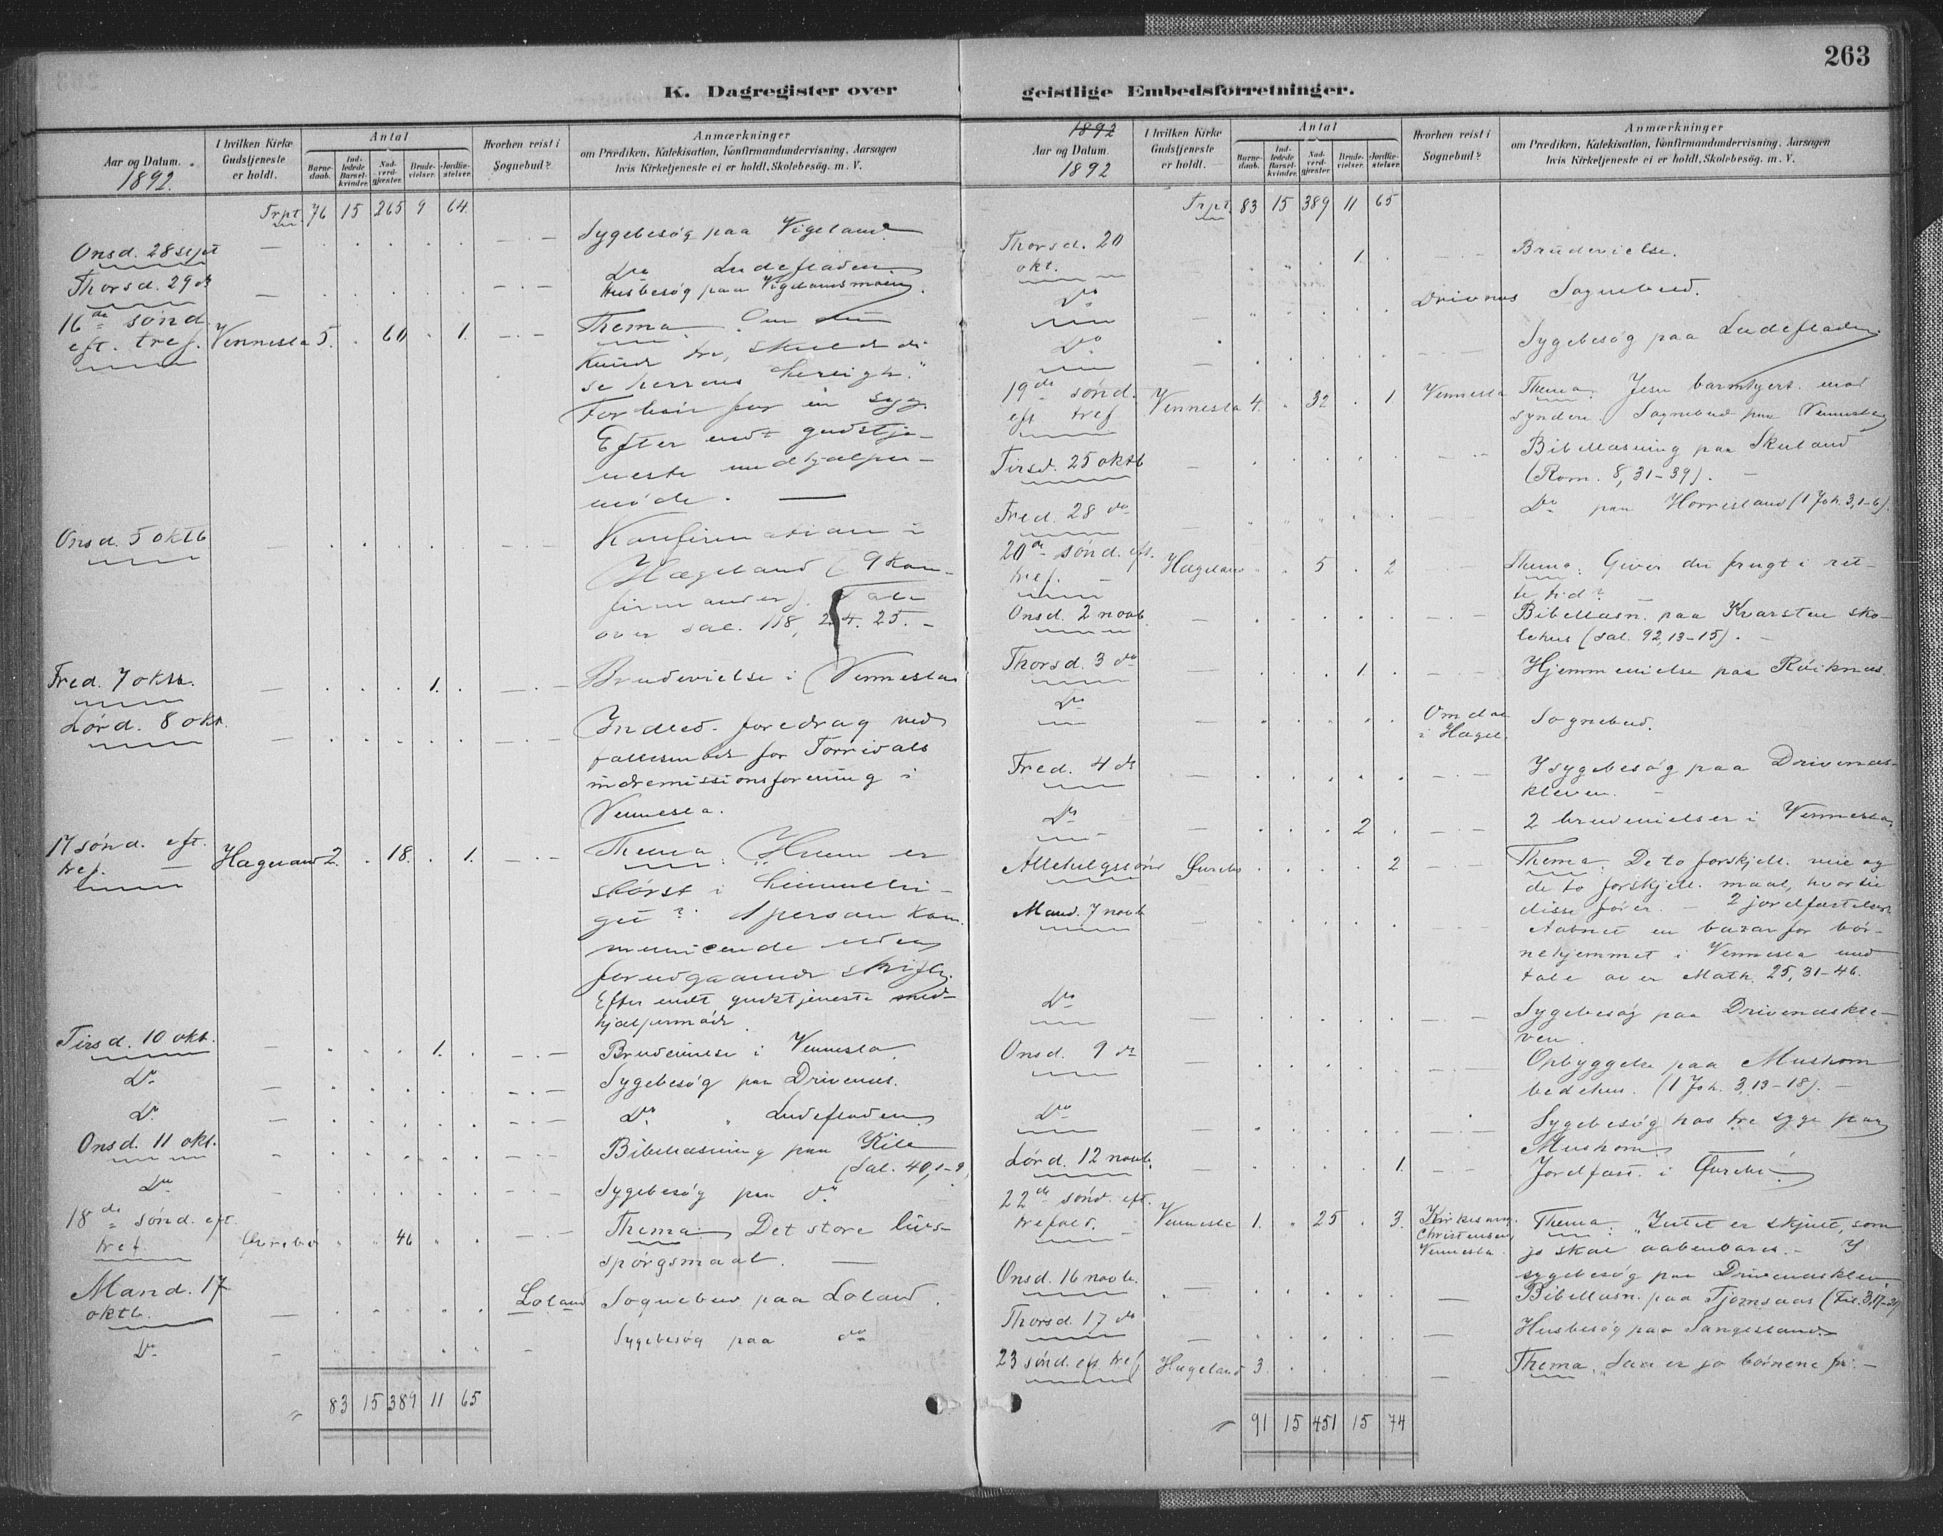 263
K. Dagregister over
geistlige Embedsforretninger.
Aar og Datum.
1892.
I hvilken Kirke
Gudstjeneste
er holdt.
Antal
Barne-
daab.
Ind-
ledede
Barsel-
kvinder.
Nad-
verd-
gjæster.
Brude-
vielser.
Jordfæ-
stelser.
Hvorhen reist i
Sognebud?
Anmærkninger
om Prædiken, Katekisation, Konfirmandundervisning, Aarsagen
hvis Kirketjeneste ei er holdt, Skolebesøg. m. V.
Trpt. 76 15 265 9 64
Onsd. 28 sept — Sygebesøg paa Vigeland
Thorsd. 29 do — Do Ludefladen
Husbesøg paa Vigelandsmoen.
16de sønd.
eft. tref. Vennesla 5. 60 1. Thema. Om
kunde tro, skulde du
se herrens herligh."
Forbøn for en syg.
Efter endt gudstje-
neste medhjælper-
møde. —
Onsd. 5 oktb — Konfirmation i
Hægeland (9 kon-
firmander). Tale
over sal. 118, 24. 25. -
Fred. 7 oktb. — 1. Brudevielse i Vennesla
Lørd. 8 okt. — Indled. foredrag ved
fællesmøde for Torridals
indremissionsforening i
Vennesla.
17 sønd. eft.
tref. — Hægeland 2. 18. 1. Thema: Hvem er
størst i himmeri-
get? 1 person kom-
municerede uden
forudgaaende skrifte.
Efter endt gudstjeneste med-
hjælpermøde.
Tirsd. 10 okt. — 1. Brudevielse i Vennesla.
Do — Sygebesøg paa Drivenes.
Do — Do " Ludefladen
Onsd. 11 okt. — Bibellæsning paa Kile
(Sal. 40, 1-9)
Do — Sygebesøg paa do
18de sønd. eft.
tref. Øvrebø 46 Thema: Det store livs-
spørgsmaal. —
Mand. 17
oktb. — Loland Sognebud paa Loland.
Do — Sygebesøg paa do
83 15 389 11 65
1892
Aar og Datum.
1892
I hvilken Kirke
Gudstjeneste
er holdt.
Antal
Barne-
daab.
Ind-
ledede
Barsel-
kvinder.
Nad-
verd-
gjæster.
Brude-
vielser.
Jordfæ-
stelser.
Hvorhen reist i
Sognebud?
Anmærkninger
om Prædiken, Katekisation, Konfirmandundervisning, Aarsagen
hvis Kirketjeneste ei er holdt, Skolebesøg. m. V.
Trpt. 83 15 389 11 65
Thorsd. 20
okt. 1. Brudevielse.
Do — Drivnes Sognebud.
Do — Sygebesøg paa Ludefladen.
19de sønd.
eft tref Vennesla 4. 32 1 Vennesla Thema: Jesu barmhjert. mod
syndere. Sognebud paa Vennesla
Tirsd. 25 oktb — Bibellæsning paa Skuland
(Rom. 8, 31-39). —
Fred. 28 do — Do paa Horrisland (1 Joh. 3, 1-6).
20de sønd. eft.
tref. — Hægeland 5 2 Thema: Giver du frugt i ret-
te tid? —
Onsd. 2 novb. — Bibellæsn. paa Kvarsten sko-
lehus (sal. 92, 13-15). —
Thorsd. 3 do — 1. Hjemmevielse paa Røiknes.
Do — Omdal
i Hægel. Sognebud.
Fred. 4 do — Sygebesøg paa Drivenes-
kleven. —
Do — 2 2 brudevielser i Vennesla
Allehelgssønd Øvrebø 2 Thema: De to forskjell. veie og
de to forskjell. maal, hvortil
disse fører. — 2 jordfæstelser
Mand. 7 novb — Aabnet en bazar for bør-
nehjemmet i Vennesla med
tale over Math. 25, 31-46.
Do Sygebesøg paa Driveneskle-
ven.
Onsd. 9 do — Opbyggelse paa Mushom
bedehus. (1 Joh. 3, 13-18). —
Do — Sygebesøg hos tre syge paa
Mushom.
Lørd. 12 novb. — 1. Jordfæst. i Øvrebø
22de sønd. eft.
trefold. - Vennesla 1. 25 3. Kirkesang.
Christensen,
Vennesla. Thema: "Intet er skjult, som
jo skal aabenbares. —
sygebesøg paa Driveneskleven
Onsd. 16 novb. — Bibellæsn. paa Tjomsaas (Fil. 3, 17-21)
Thorsd. 17 do — Husbesøg paa Sangesland
23 sønd. eft tref Hægeland 3. — Thema. Saa er jo børnene fri. —
91 15 451 15 74